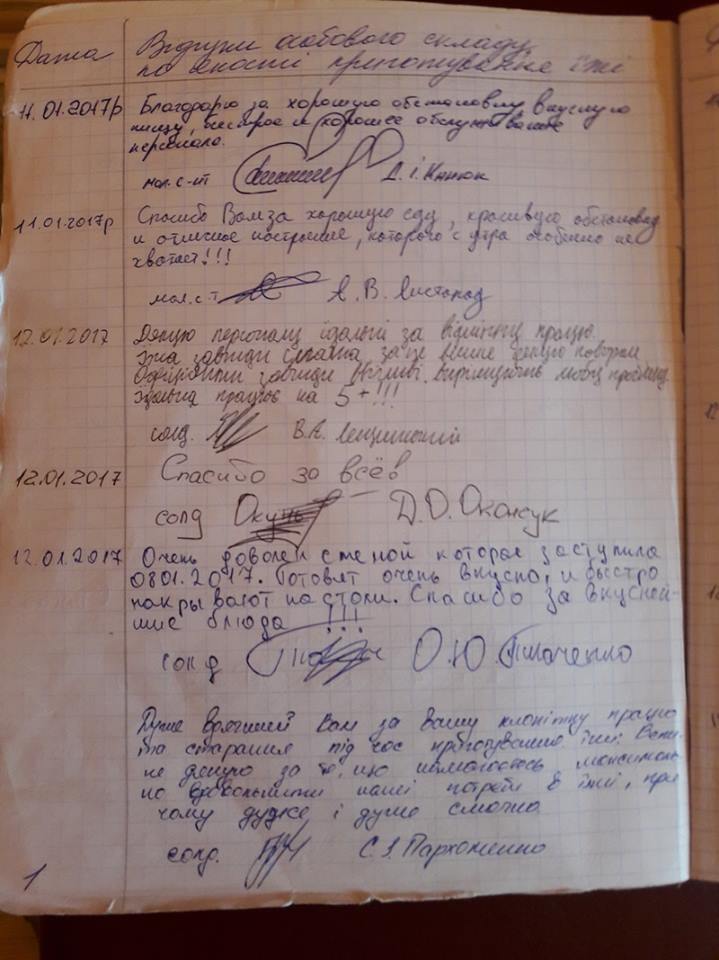 Дата
Відгуки особового складу
по якості приготування їжі
11.01.2017р Благодарю за хорошую обстановку вкусную
пищу, быстрое и хорошее обслуживание
персонала.
мол. с-нт Д.І.
11.01.2017р Спасибо Вам за хорошую еду, красивую обстановку
и отличное настроение, которого с утра особенно не
хватает!!!
мол. с-т А. В. Листопад
12.01.2017 Дякую персоналу їдальні за відмінну працю.
Їжа завжди смачна за це дякую поварам
Офіціантки завжди ввічливі. вирішують любу проблему.
Їдальня працює на 5+!!!
солд. В.А.
12.01.2017 Спасибо за всёв
солд Окунь Д.О.
12.01.2017 Очень доволен сменой которая заступила
0801.2017. Готовят очень вкусно, и быстро
накрывают на столи. Спасибо за вкусней-
шие блюда !!!
солд О.Ю.
Дуже вдячний Вам за вашу клопітку працю
та старання під час приготування їжі.
не дякую за те, що намагаєтесь максималь
но вдовольнити наші потреби в їжі, при
чому дуже і дуже смачно.
солд. С.І. Пархоменко
1